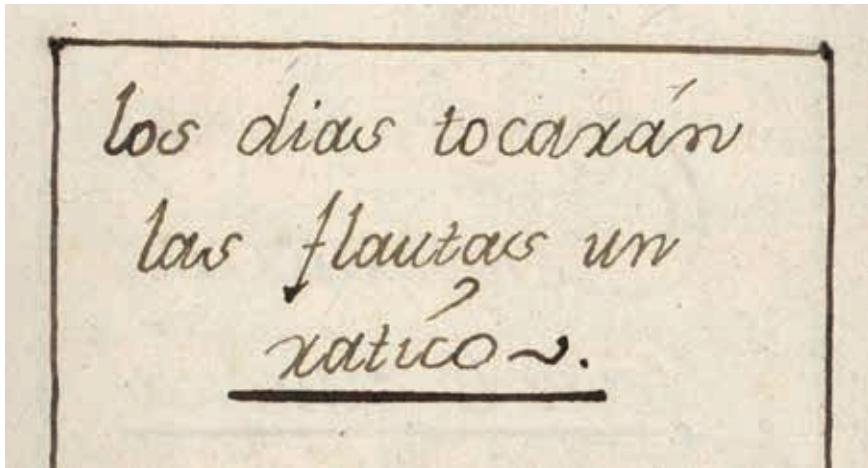 los dias tocarán
las flautas un
ratico ~.